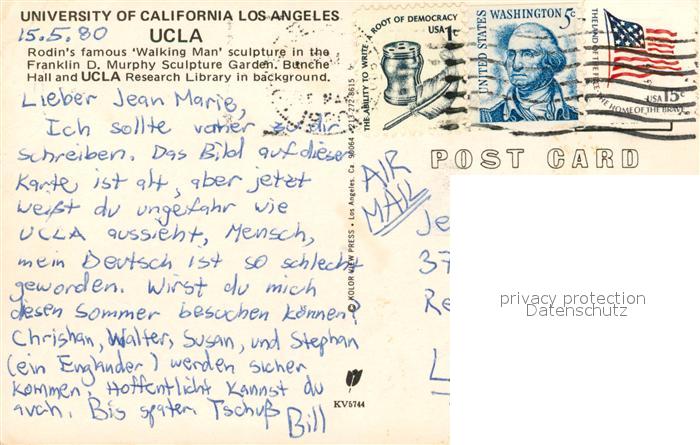 UNIVERSITY OF CALIFORNIA LOS ANGELES
15.5.80 UCLA
Rodin's famous 'Walking Man' sculpture in the
Franklin D. Murphy Sculpture Garden. Bunche
Hall and UCLA Research Library in background.
Lieber Jean Marie,
Ich sollte vorher zu dir
schreiben. Das Bild auf dieser
Karte ist alt, aber jetzt
weißt du ungefahr wie
UCLA aussieht, Mensch,
mein Deutsch ist so schlecht
geworden. Wirst du mich
diesen Sommer besuchen können?
Chrishan, Walter, Susan, und Stephan
(ein Englander) werden sicher
kommen. Hoffentlicht kannst du
auch. Bis spater. Tschuß
Bill
© KOLOR VIEW PRESS • Los Angeles, Ca. 90064 • 213 272 8615
KV5744
THE ABILITY TO WRITE · A ROOT OF DEMOCRACY
USA 1c
UNITED STATES WASHINGTON 5c
THE LAND OF THE FREE THE HOME OF THE BRAVE
USA 15c
POST CARD
AIR
MAIL
Je
37
Re
L
privacy protection
Datenschutz